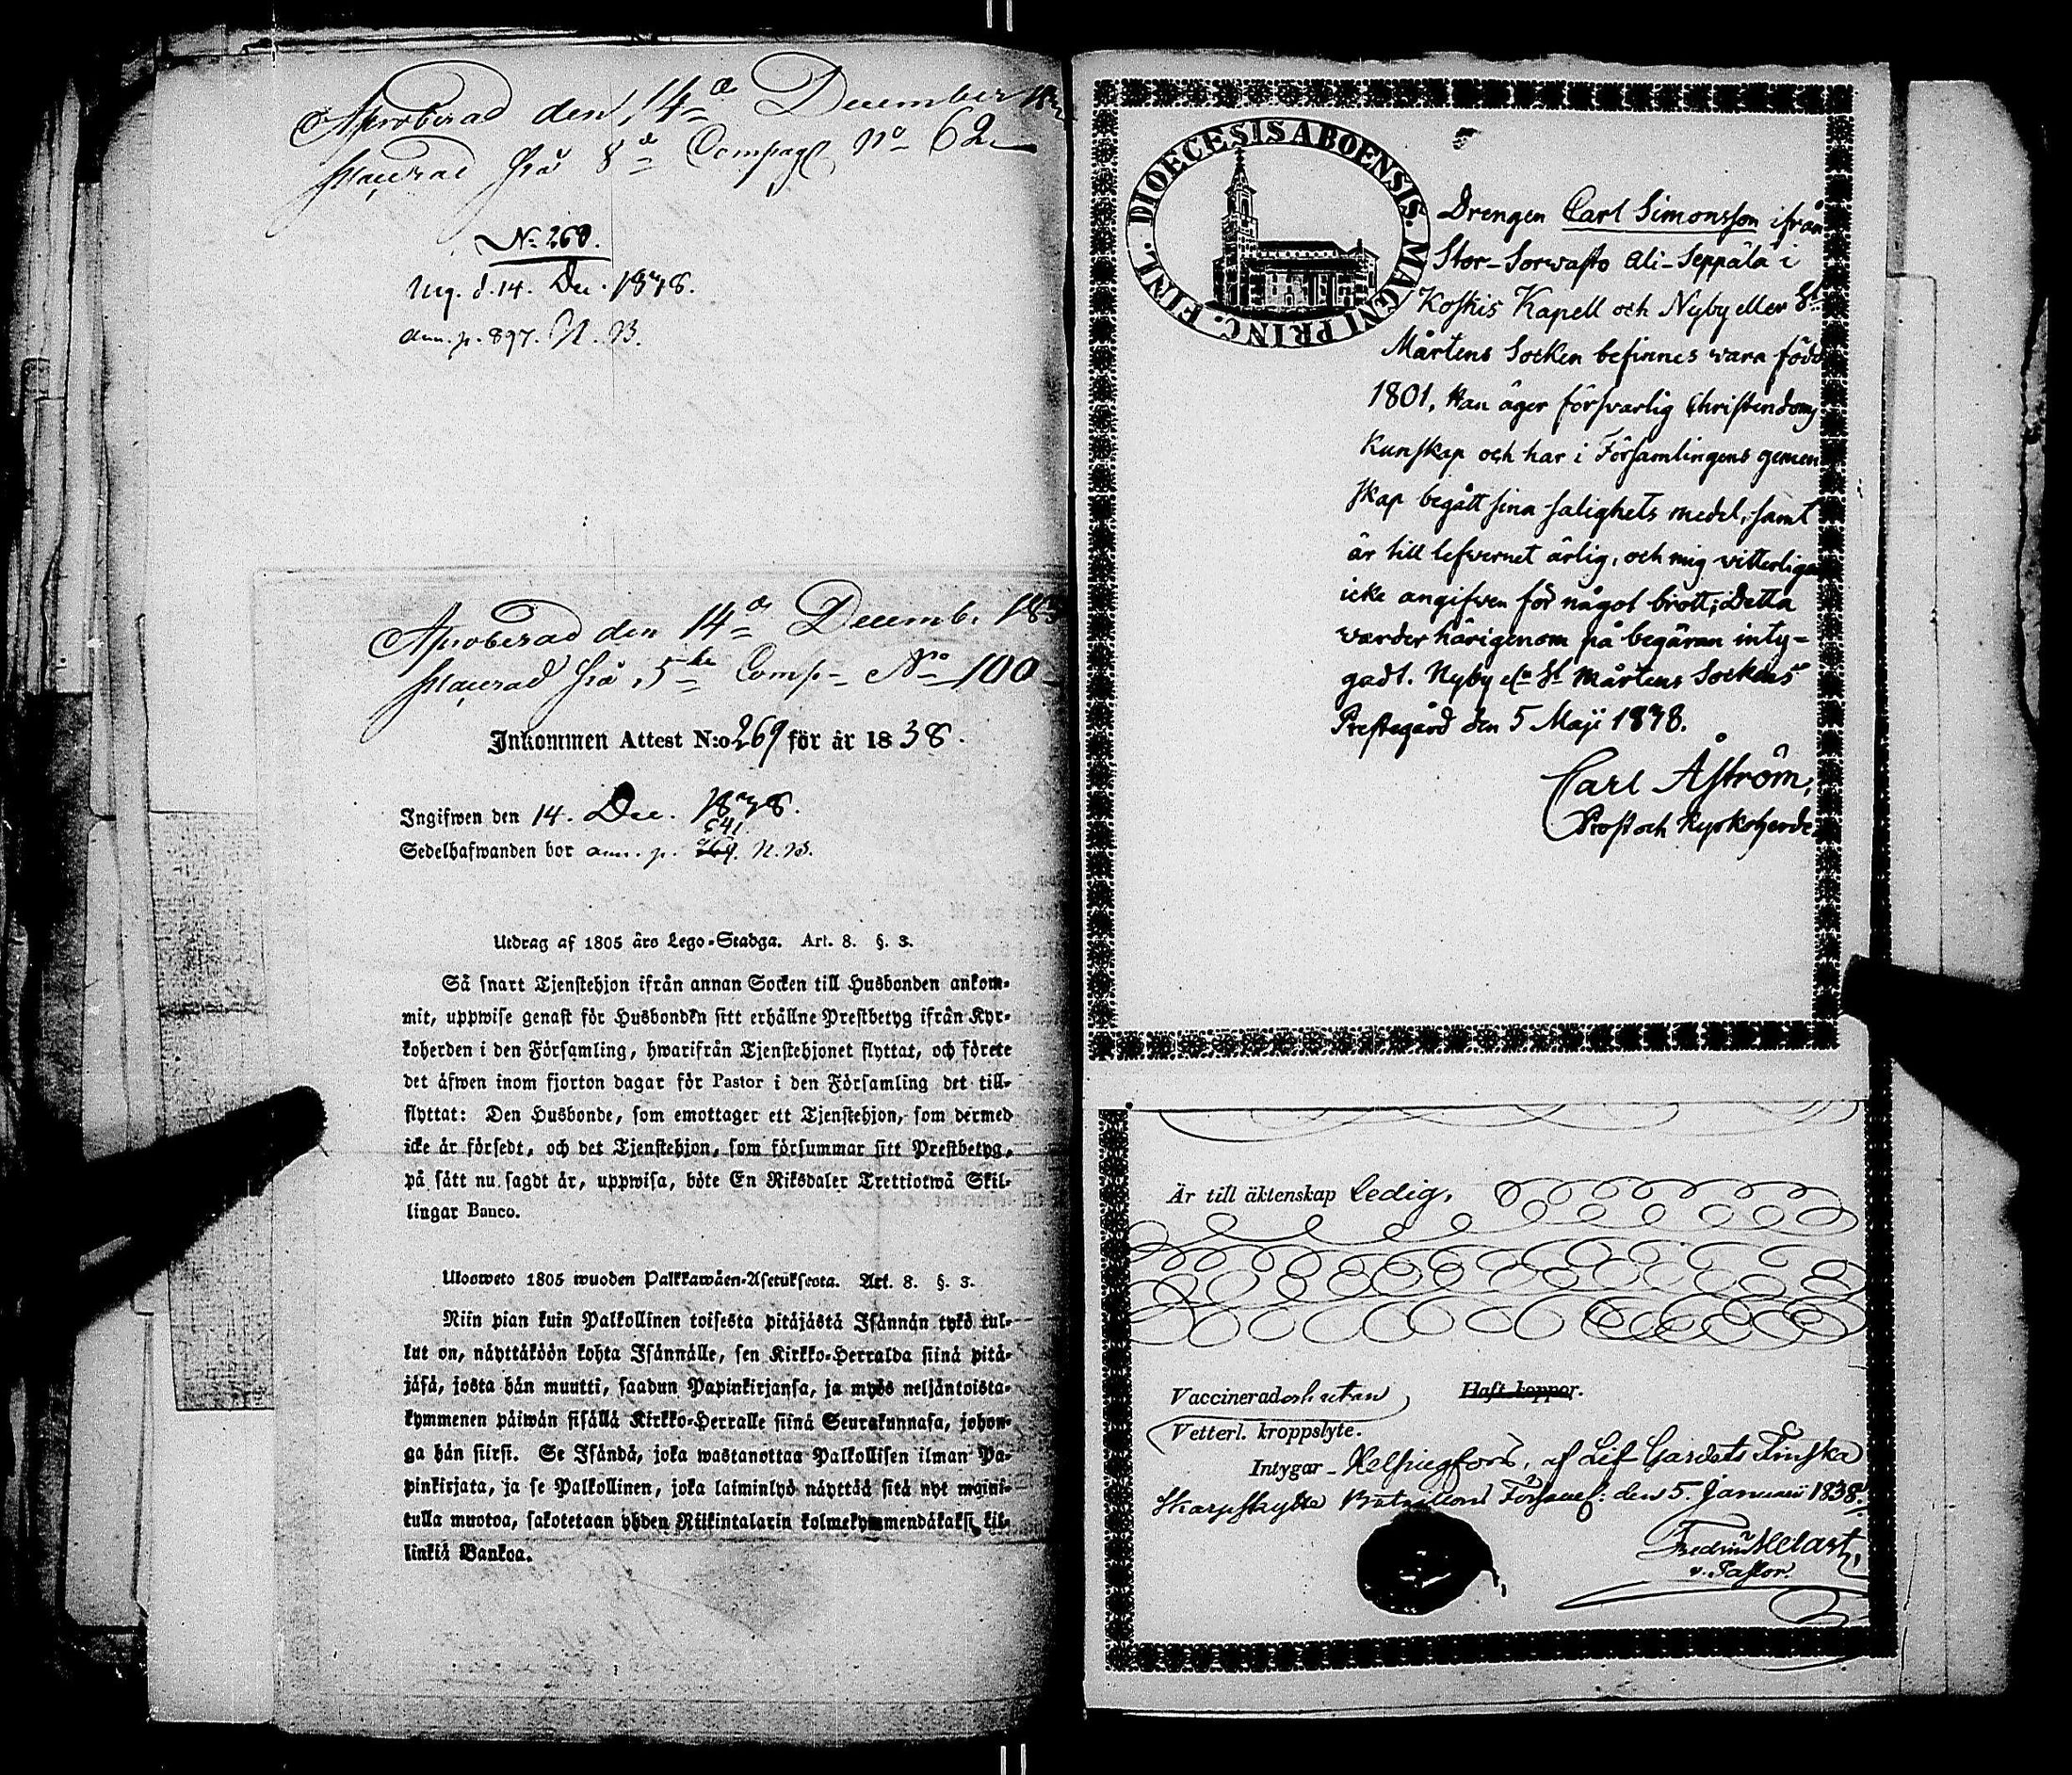 Aproberad den 14de December
placerad på 8de Compag N° 62
N: 268.
Ucq. d. 14. Dec. 1838.
ann. p. 897. N. B.
Aproberad den 14de Decemb. 183
placerad på 5te Comp N° 100
Inkommen Attest N:o 269 för år 1838.
Ingifwen den 14. Dec. 1838.
641
Sedelhafwanden bor ann. p. 769. N. B.
Utdrag af 1805 års Lego-Stadga. Art. 8. §. 3.
Så snart Tjenstehjon ifrån annan Socken till Husbonden ankom-
mit, uppwise genast för Husbondėn sitt erhållne Prestbetyg ifrån Kyr-
koherden i den Församling, hwarifrån Tjenstehjonet flyttat, och förete
det äfwen inom fjorton dagar för Pastor i den Församling det till-
flyttat: Den Husbonde, som emottager ett Tjenstehjon, som dermed
icke är försedt, och det Tjenstehjon, som försummar sitt Prestbetyg,
på sätt nu sagdt är, uppwisa, böte En Riksdaler Trettiotwå Skil-
lingar Banco.
Ulosweto 1805 wuoden Palkkawäen-Asetuksesta. Art. 8. §. 3.
Niin pian kuin Palkollinen toisesta pitäjästä Isännän tykö tul-
lut on, näyttäköön kohta Isännälle, sen Kirkko-Herralda siinä pitä-
jäsä, josta hän muutti, saadun Papinkirjansa, ja myös neljäntoista-
kymmenen päiwän sisällä Kirkko-Herralle siinä Seurakunnasa, johon-
ga hän siirsi. Se Isändä, joka wastanottaa Palkollisen ilman Pa-
pinkirjata, ja se Palkollinen, joka laiminlyö näyttää sitä nyt mainit-
tulla muotoa, sakotetaan yhden Riikintalarin kolmekymmendäkaksi kil-
linkiä Bankoa.
FINL. DIOECESIS ABOENSIS. MAGNI PRINC.
Drengen Carl Simonsson ifrån
Stor-Sorvasto Ali-Seppälä i
Koskis Kapell och Nyby eller St
Mårtens Socken befinnes vara född
1801, Han äger försvarlig Christendoms
Kunskap och har i Församlingens gemen
skap begått sina salighets medel, samt
är till lefvernet ärlig, och mig vitterligen
icke angifven för något brott; Detta
varder härigenom på begäran inty-
gadt. Nyby el. St Mårtens Sockens
Prestegård den 5 Maji 1838.
Carl Åström,
Prost och Kyrkoherde
Är till äktenskap Ledig.
Vaccinerad och utan Haft koppor.
Vetterl. kroppslyte.
Intygar Helsingfors, af Lif Gardets Finska
Skarpskytte Bataillons Församl: den 5. Januarii 1838.
v. Pastor.